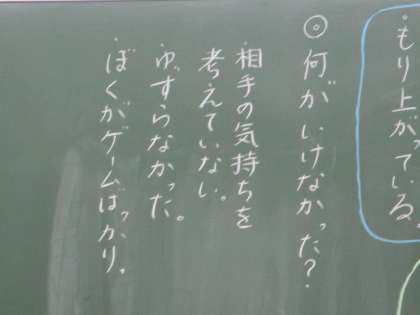 ・もり上がっている。
◎何がいけなかった？
・相手の気持ちを
考えていない。
・ゆずらなかった。
・ぼくがゲームばっかり。